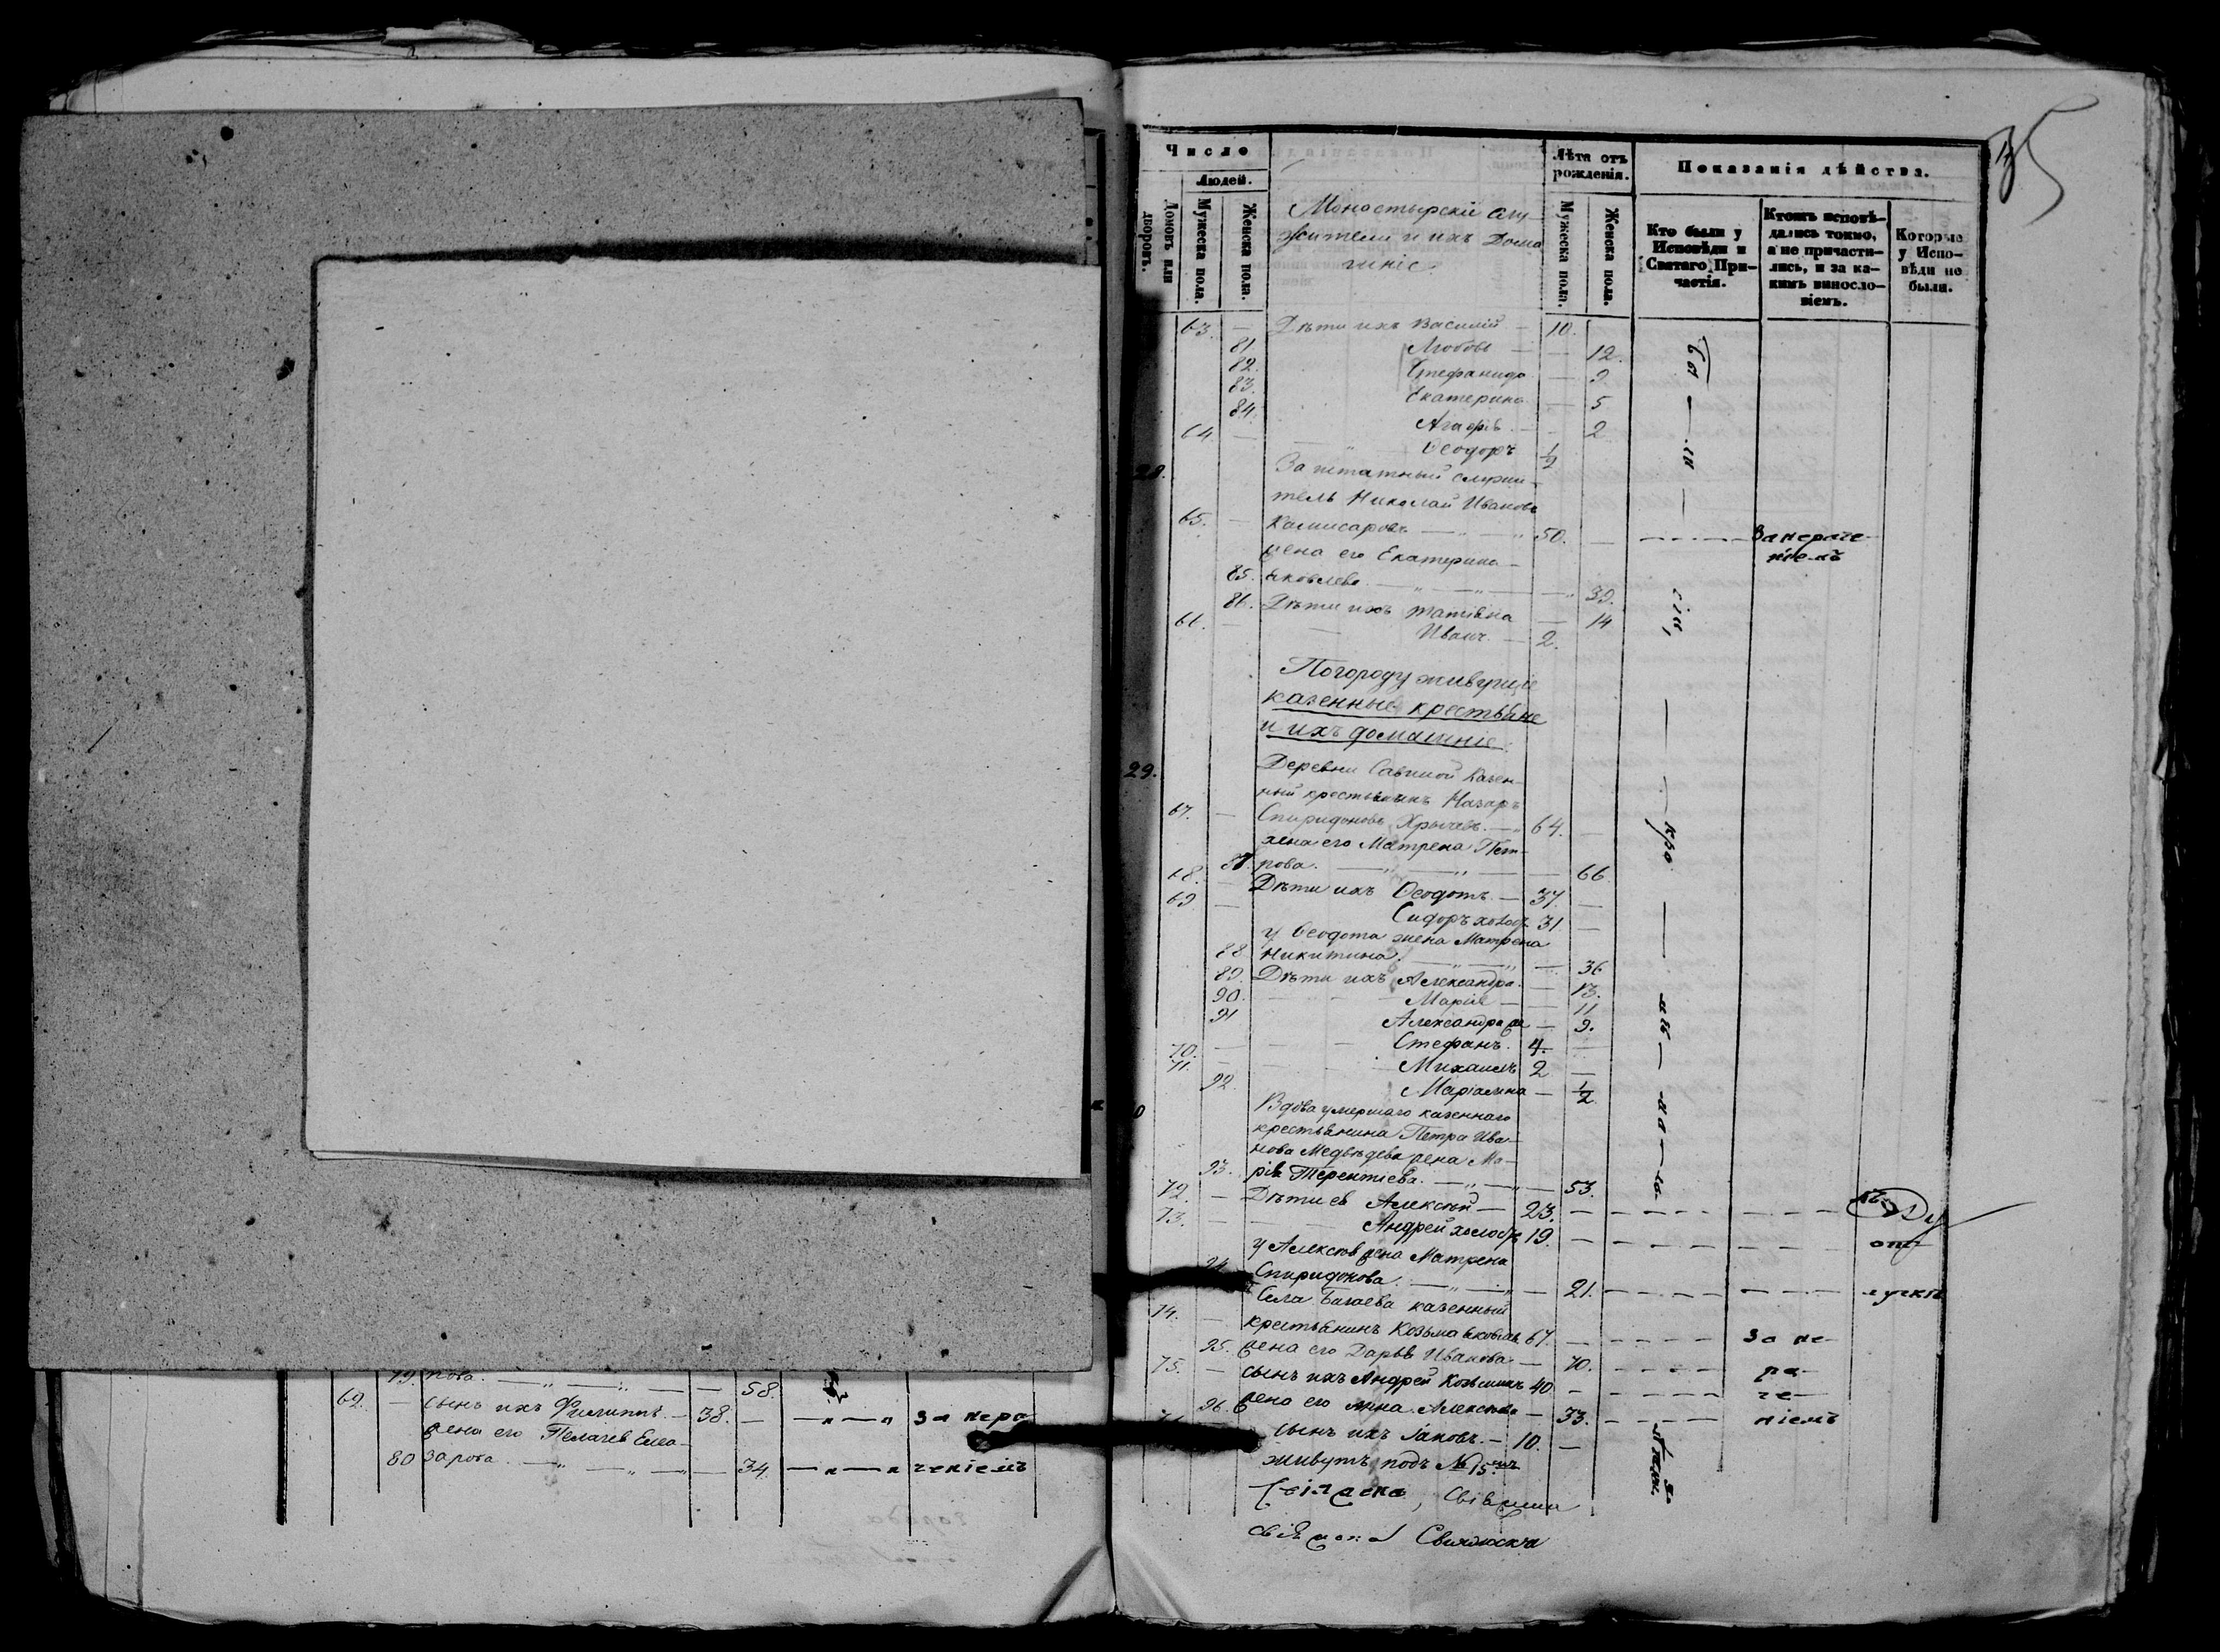 79. пова. — „ — „ — — 58.
62. — сынъ ихъ Филиппъ. — 38. — — „ — „ за нера
жена его Пелагея Елеа-
80 зарова. — „ — „ — 34. — „ — „ ченіемъ
35
Число
Людей.
Домовъ или дворовъ.
Мужеска пола.
Женска пола.
Монастырскіе слу-
жители и ихъ Дома
шніе.
Лѣта отъ рожденія.
Мужеска пола.
Женска пола.
Показанія дѣйства.
Кто были у Исповѣди и Святаго Причастія.
Ктожъ исповѣдались токмо, а не причастились, и за какимъ винословіемъ.
Которые у Исповѣди не были.
63. — Дѣти ихъ Василій — 10.
81. Любовь — — 12.
82. Стефанида — 9.
83. Екатерина — 5
84. Агафія — 2
64 — Ѳеодоръ 1/2
28. Заштатный служи-
тель Николай Ивановъ
65. — Комисаровъ — „ 50. — За нераче-
ніемъ
жена его Екатерина
85. Яковлева — „ — „ — 39.
86. Дѣти ихъ Татіяна — 14
66. — Иванъ. — 2.
По городу живущіе
казенные крестьяне
и ихъ домашніе.
29. Деревни Савиной Казен-
ный крестьянинъ Назаръ
67. — Спиридоновъ Хрычевъ. — „ 64. —
жена его Матрена Пет-
87. рова. — „ — „ — 66
68. — Дѣти ихъ Ѳеодотъ — 37. —
69 — Сидоръ холос. 31 —
у Ѳеодота жена Матрена
88 Никитина. — „ — „ — 36
89. Дѣти ихъ Александра — 13.
90. Марія — — 11
91 Александра же — 9.
70. — Стефанъ. 4. —
71. — Михаилъ 2 —
92. Маріамна — 1/2
Вдова умершаго казеннаго
крестьянина Петра Ива-
нова Медвѣдева жена Ма-
93. рія Терентіева. — „ — „ — 53.
72. — Дѣти ея Алексѣй — 23. —
73. — Андрей холос. 19. — от-
у Алексѣя жена Матрена
94 Спиридонова. — „ — „ — 21. — лучкѣ
Села Багаева казенный
74. — крестьянинъ Козьма Яковлевъ 67. — за не-
95. жена его Дарья Иванова — 70. — ра-
75. — сынъ ихъ Андрей Козьминъ 40 — че-
96 жена его Анна Алексѣева — 33. — ніемъ
сынъ ихъ Іаковъ. — 10. —
живутъ подъ № 15.